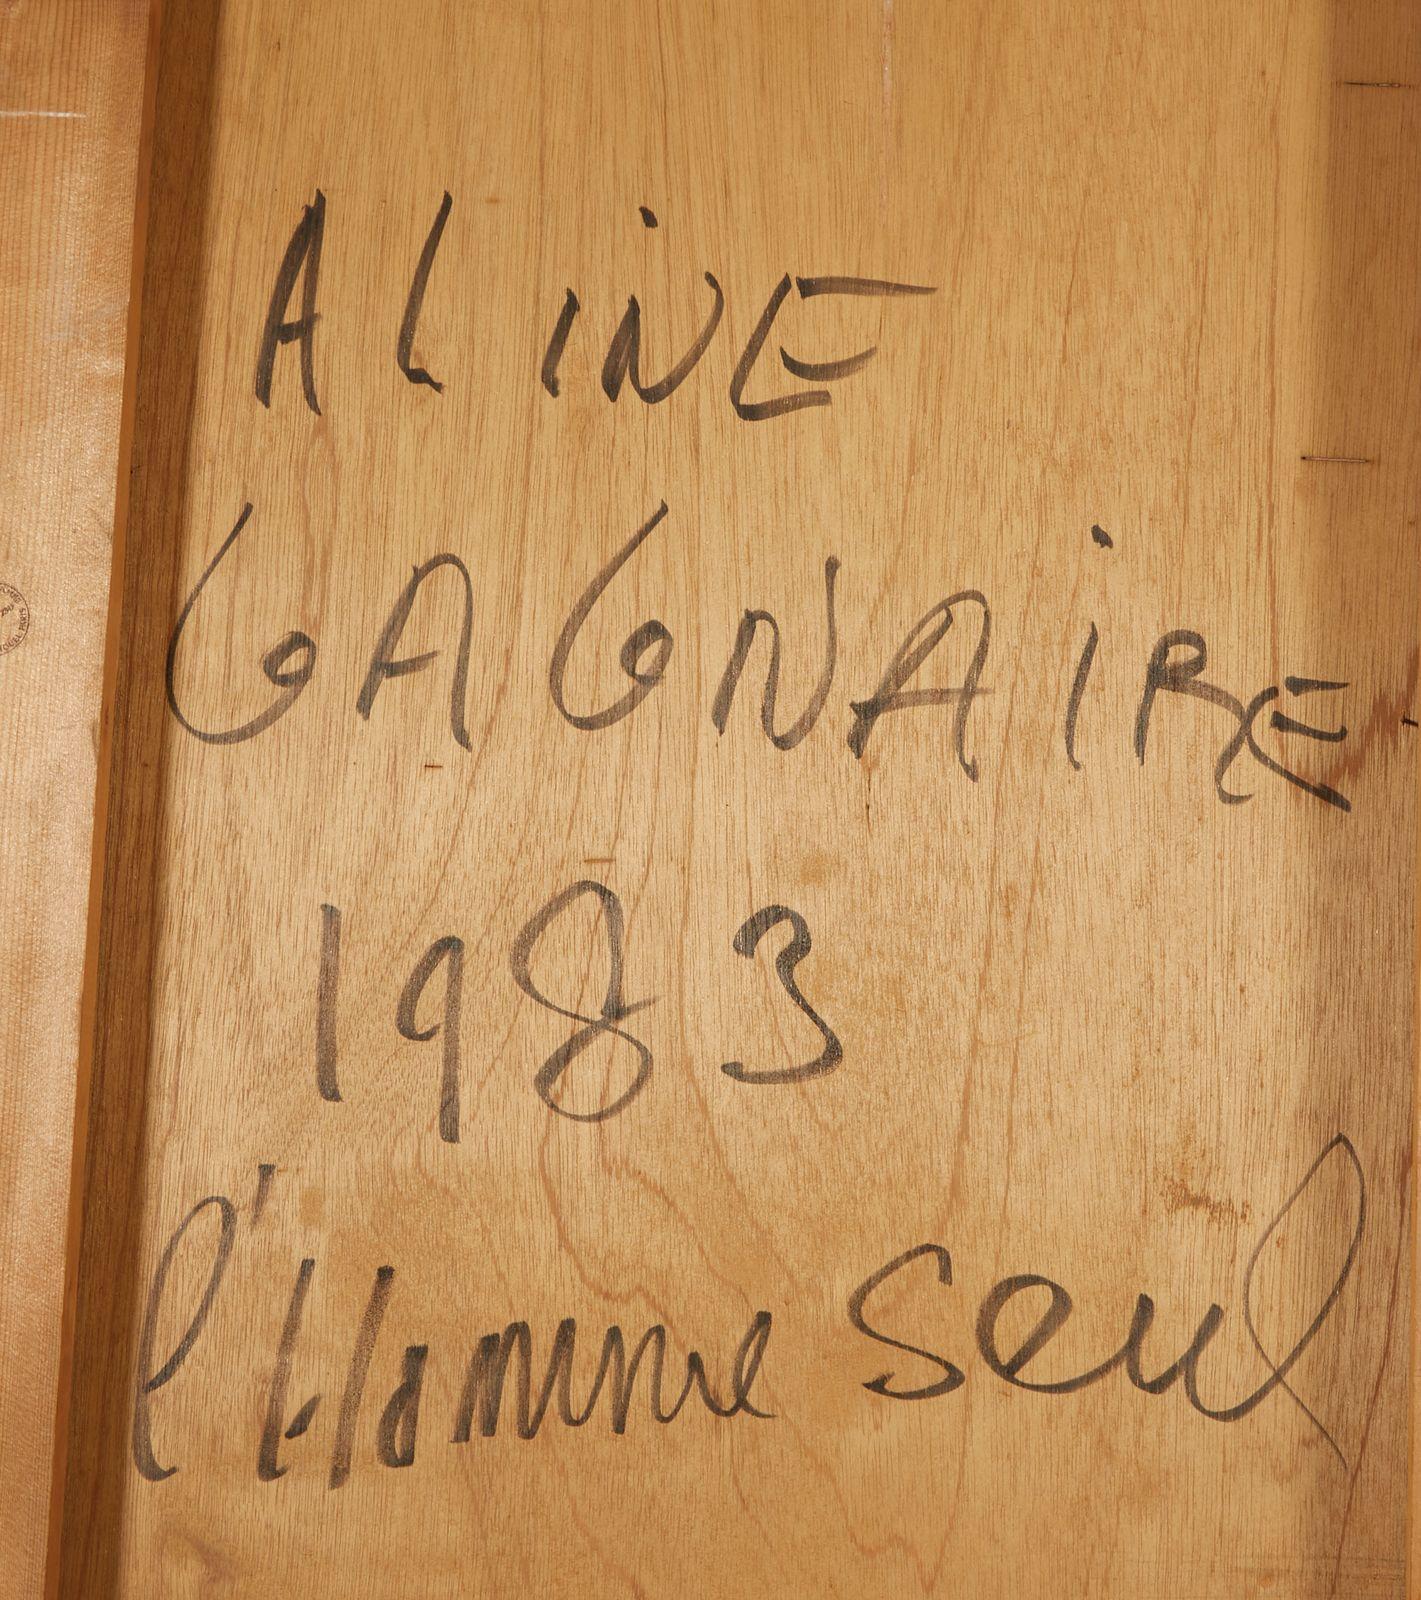 ALiNE
GAGNAiRE
1983
l'Homme seul